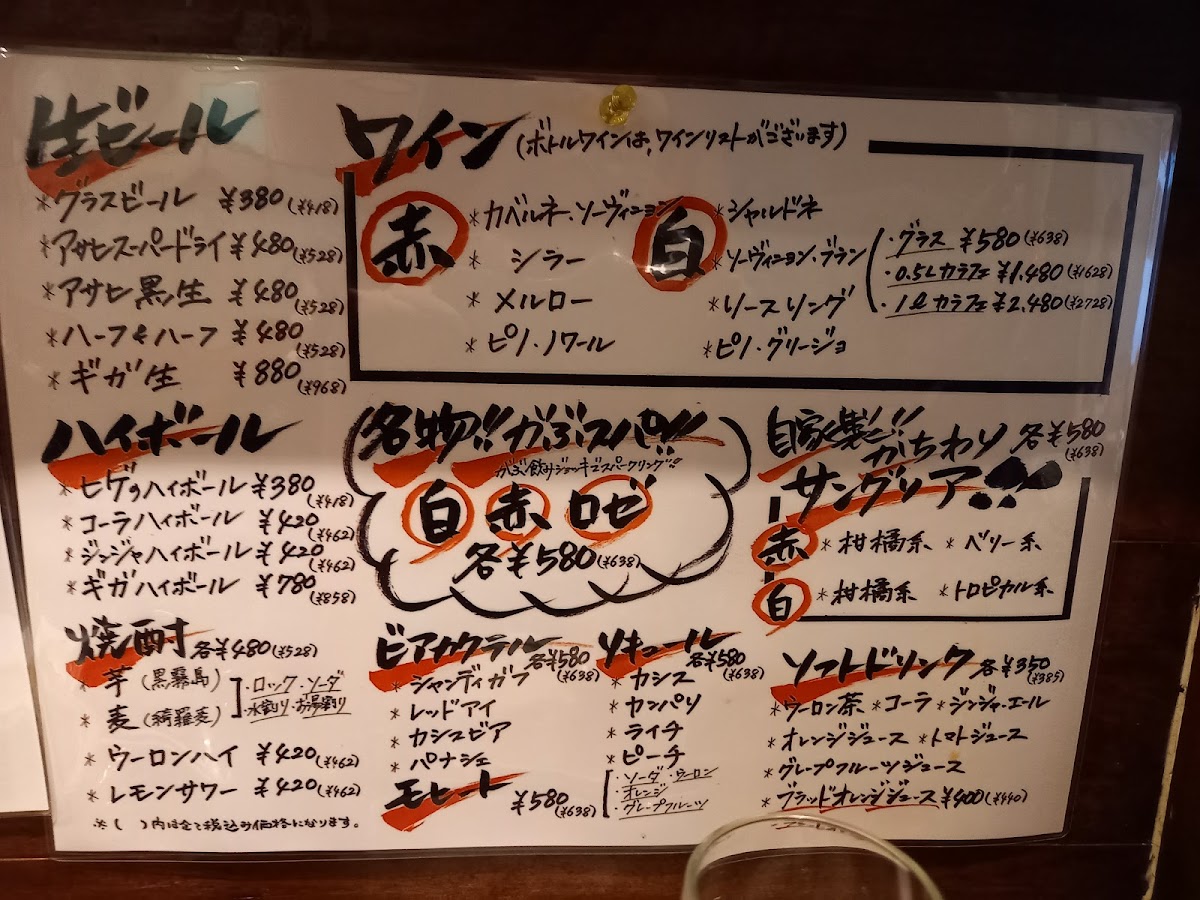 生ビール
*グラスビール ¥380(¥418)
*アサヒスーパードライ ¥480(¥528)
*アサヒ黒生 ¥480(¥528)
*ハーフ&ハーフ ¥480(¥528)
*ギガ生 ¥880(¥968)
ワイン(ボトルワインは、ワインリストがございます)
赤
*カベルネ・ソーヴィニヨン
*シラー
*メルロー
*ピノ・ノワール
白
*シャルドネ
*ソーヴィニヨン・ブラン
*リースリング
*ピノ・グリージョ
・グラス ¥580(¥638)
・0.5Lカラフェ ¥1,480(¥1628)
・1ℓカラフェ ¥2,480(¥2728)
ハイボール
*ヒゲのハイボール ¥380(¥418)
*コーラハイボール ¥420(¥462)
*ジンジャハイボール ¥420(¥462)
*ギガハイボール ¥780(¥858)
名物!!がぶスパ!!
がぶ飲みジョッキでスパークリング!!
白 赤 ロゼ
各¥580(¥638)
自家製!!がちわり 各¥580(¥638)
サングリア!!
赤 *柑橘系 *ベリー系
白 *柑橘系 *トロピカル系
焼酎 各¥480(¥528)
*芋(黒霧島)
*麦(綺羅麦)
・ロック ・ソーダ
・水割り ・お湯割り
*ウーロンハイ ¥420(¥462)
*レモンサワー ¥420(¥462)
※( )内は全て税込み価格になります。
ビアカクテル 各¥580(¥638)
*シャンディガフ
*レッドアイ
*カシスビア
*パナシェ
モヒート ¥580(¥638)
リキュール 各¥580(¥638)
*カシス
*カンパリ
*ライチ
*ピーチ
・ソーダ ・ウーロン
・オレンジ
・グレープフルーツ
ソフトドリンク 各¥350(¥385)
*ウーロン茶 *コーラ *ジンジャーエール
*オレンジジュース *トマトジュース
*グレープフルーツジュース
*ブラッドオレンジジュース ¥400(¥440)